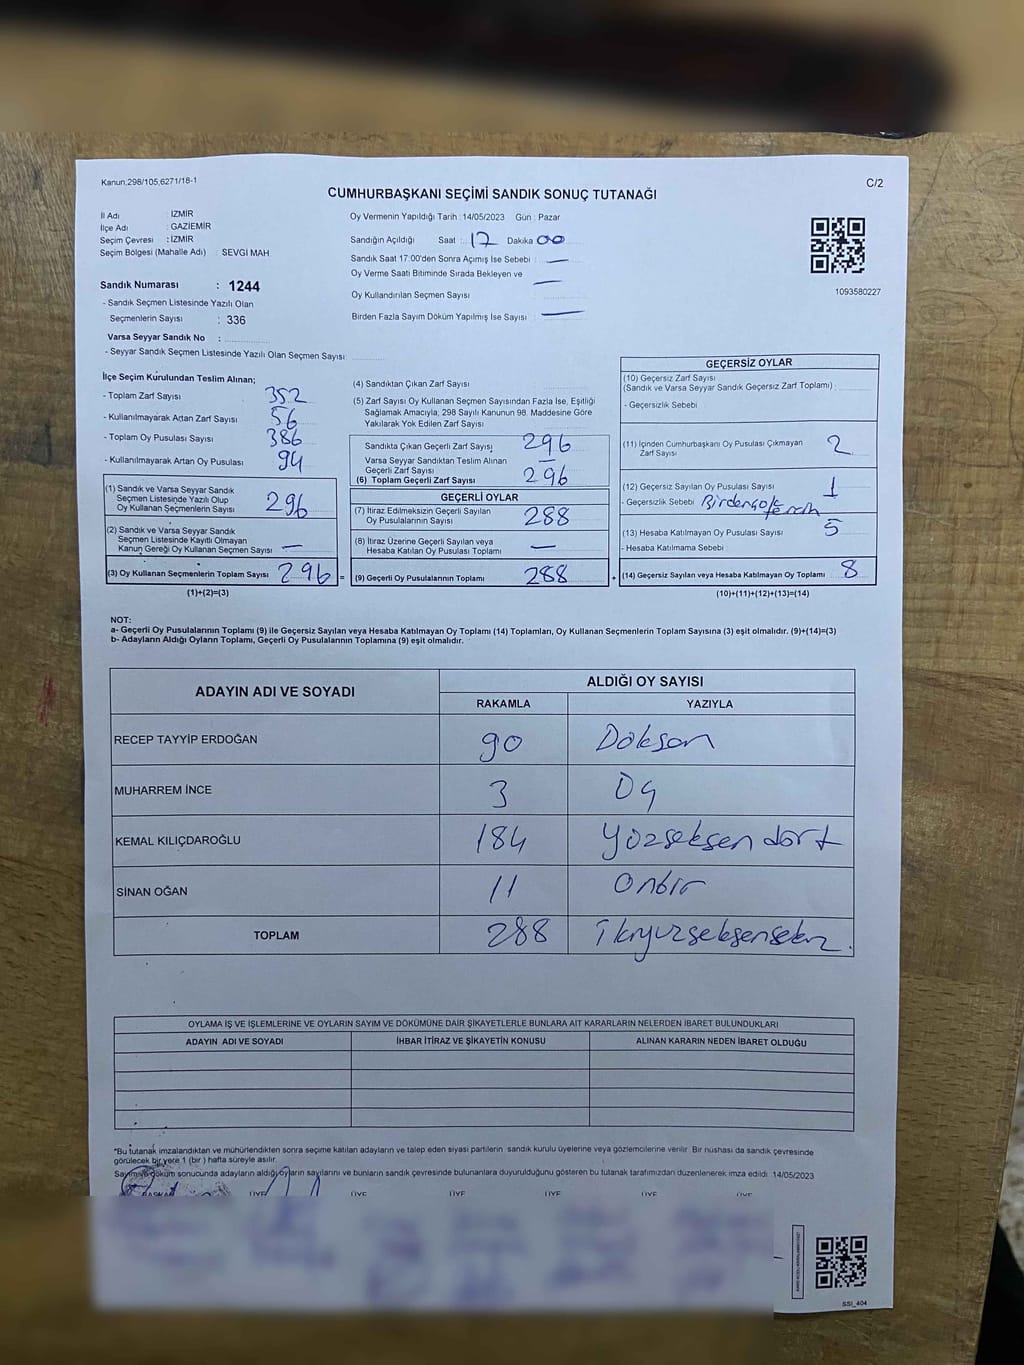 Kanun,298/105,6271/18-1
C/2
CUMHURBAŞKANI SEÇİMİ SANDIK SONUÇ TUTANAĞI
İl Adı : İZMİR
İlçe Adı : GAZİEMİR
Seçim Çevresi : İZMİR
Seçim Bölgesi (Mahalle Adı) : SEVGI MAH
Sandık Numarası : 1244
- Sandık Seçmen Listesinde Yazılı Olan
Seçmenlerin Sayısı : 336
Varsa Seyyar Sandık No :
- Seyyar Sandık Seçmen Listesinde Yazılı Olan Seçmen Sayısı:
Oy Vermenin Yapıldığı Tarih : 14/05/2023 Gün : Pazar
Sandığın Açıldığı Saat : 17 Dakika 00
Sandık Saat 17:00'den Sonra Açımış İse Sebebi : —
Oy Verme Saati Bitiminde Sırada Bekleyen ve —
Oy Kullandırılan Seçmen Sayısı
Birden Fazla Sayım Döküm Yapılmış İse Sayısı : —
1093580227
İlçe Seçim Kurulundan Teslim Alınan;
- Toplam Zarf Sayısı 352
- Kullanılmayarak Artan Zarf Sayısı 56
- Toplam Oy Pusulası Sayısı 386
- Kullanılmayarak Artan Oy Pusulası 94
(1) Sandık ve Varsa Seyyar Sandık
Seçmen Listesinde Yazılı Olup
Oy Kullanan Seçmenlerin Sayısı 296
(2) Sandık ve Varsa Seyyar Sandık
Seçmen Listesinde Kayıtlı Olmayan
Kanun Gereği Oy Kullanan Seçmen Sayısı —
(3) Oy Kullanan Seçmenlerin Toplam Sayısı 296 =
(1)+(2)=(3)
(4) Sandıktan Çıkan Zarf Sayısı
(5) Zarf Sayısı Oy Kullanan Seçmen Sayısından Fazla İse, Eşitliği
Sağlamak Amacıyla, 298 Sayılı Kanunun 98. Maddesine Göre
Yakılarak Yok Edilen Zarf Sayısı
Sandıkta Çıkan Geçerli Zarf Sayısı 296
Varsa Seyyar Sandıktan Teslim Alınan
Geçerli Zarf Sayısı —
(6) Toplam Geçerli Zarf Sayısı 296
GEÇERLİ OYLAR
(7) İtiraz Edilmeksizin Geçerli Sayılan
Oy Pusulalarının Sayısı 288
(8) İtiraz Üzerine Geçerli Sayılan veya
Hesaba Katılan Oy Pusulası Toplamı —
(9) Geçerli Oy Pusulalarının Toplamı 288 +
GEÇERSİZ OYLAR
(10) Geçersiz Zarf Sayısı
(Sandık ve Varsa Seyyar Sandık Geçersiz Zarf Toplamı) :
- Geçersizlik Sebebi
(11) İçinden Cumhurbaşkanı Oy Pusulası Çıkmayan
Zarf Sayısı 2
(12) Geçersiz Sayılan Oy Pusulası Sayısı 1
- Geçersizlik Sebebi
(13) Hesaba Katılmayan Oy Pusulası Sayısı 5
- Hesaba Katılmama Sebebi :
(14) Geçersiz Sayılan veya Hesaba Katılmayan Oy Toplamı 8
(10)+(11)+(12)+(13)=(14)
NOT:
a- Geçerli Oy Pusulalarının Toplamı (9) ile Geçersiz Sayılan veya Hesaba Katılmayan Oy Toplamı (14) Toplamları, Oy Kullanan Seçmenlerin Toplam Sayısına (3) eşit olmalıdır. (9)+(14)=(3)
b- Adayların Aldığı Oyların Toplamı, Geçerli Oy Pusulalarının Toplamına (9) eşit olmalıdır.
ADAYIN ADI VE SOYADI
ALDIĞI OY SAYISI
RAKAMLA YAZIYLA
RECEP TAYYİP ERDOĞAN 90 Doksan
MUHARREM İNCE 3
KEMAL KILIÇDAROĞLU 184 Yüzseksen dört
SİNAN OĞAN 11 Onbir
TOPLAM 288
OYLAMA İŞ VE İŞLEMLERİNE VE OYLARIN SAYIM VE DÖKÜMÜNE DAİR ŞİKAYETLERLE BUNLARA AİT KARARLARIN NELERDEN İBARET BULUNDUKLARI
ADAYIN ADI VE SOYADI İHBAR İTİRAZ VE ŞİKAYETİN KONUSU ALINAN KARARIN NEDEN İBARET OLDUĞU
*Bu tutanak imzalandıktan ve mühürlendikten sonra seçime katılan adayların ve talep eden siyasi partilerin sandık kurulu üyelerine veya gözlemcilerine verilir. Bir nüshası da sandık çevresinde
görülecek bir yere 1 (bir) hafta süreyle asılır.
Sayım ve döküm sonucunda adayların aldığı oyların sayılarını ve bunların sandık çevresinde bulunanlara duyurulduğunu gösteren bu tutanak tarafımızdan düzenlenerek imza edildi. 14/05/2023
BAŞKAN ÜYE ÜYE ÜYE ÜYE ÜYE ÜYE
SSI_404